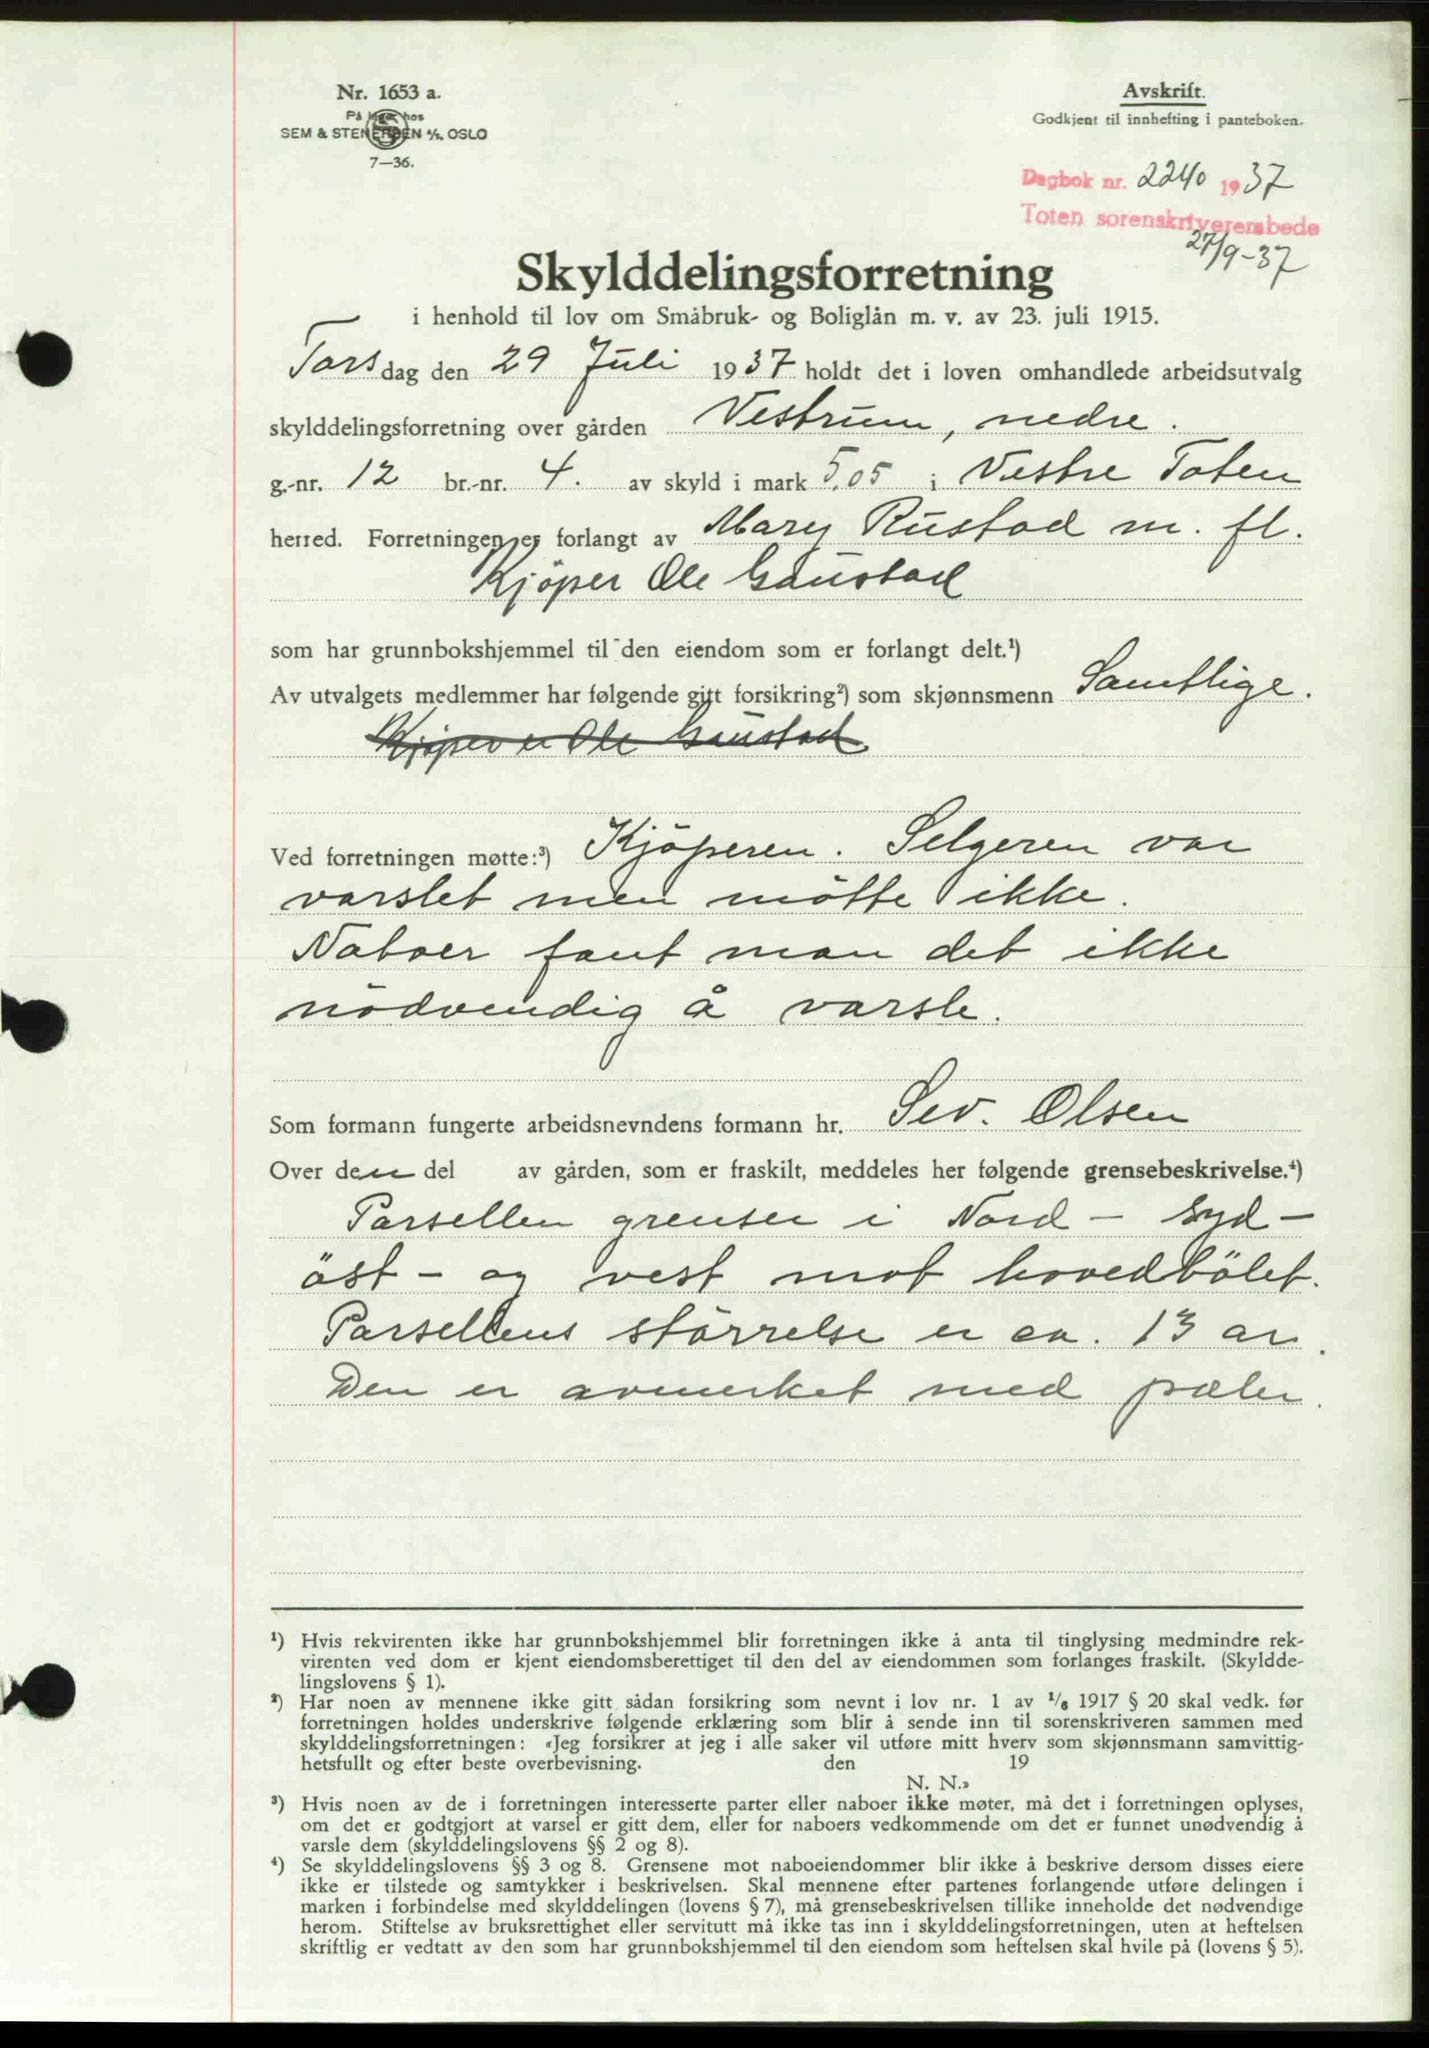 Nr. 1653 a.
På lager hos
SEM & STENERSEN A/S, OSLO
7—36.
Avskrift.
Godkjent til innhefting i panteboken.
Dagbok nr. 2240 1937
Toten sorenskriverembede
27/9-37
Skylddelingsforretning
i henhold til lov om Småbruk- og Boliglån m. v. av 23. juli 1915.
Torsdag den 29 Juli 1937 holdt det i loven omhandlede arbeidsutvalg
skylddelingsforretning over gården Vestrum, nedre.
g.-nr. 12 br.-nr. 4. av skyld i mark 5,05 i Vestre Toten
herred. Forretningen er forlangt av Mary Rustad m. fl.
Kjöper Ole Gaustad
som har grunnbokshjemmel til den eiendom som er forlangt delt.¹)
Av utvalgets medlemmer har følgende gitt forsikring²) som skjønnsmenn Samtlige.
Kjöper er Ole Gaustad
Ved forretningen møtte:³) Kjöperen. Selgeren var
varslet men mötte ikke.
Naboer fant man det ikke
nödvendig å varsle.
Som formann fungerte arbeidsnevndens formann hr. Sev. Olsen
Over den del av gården, som er fraskilt, meddeles her følgende grensebeskrivelse.⁴)
Parsellen grenser i Nord - Syd -
öst - og vest mot hovedbölet.
Parsellens störrelse er ca. 13 ar.
Den er avmerket med pæler.
¹) Hvis rekvirenten ikke har grunnbokshjemmel blir forretningen ikke å anta til tinglysing medmindre rek-
virenten ved dom er kjent eiendomsberettiget til den del av eiendommen som forlanges fraskilt. (Skyldde-
lingslovens § 1).
²) Har noen av mennene ikke gitt sådan forsikring som nevnt i lov nr. 1 av ¹/₆ 1917 § 20 skal vedk. før
forretningen holdes underskrive følgende erklæring som blir å sende inn til sorenskriveren sammen med
skylddelingsforretningen: «Jeg forsikrer at jeg i alle saker vil utføre mitt hverv som skjønnsmann samvittig-
hetsfullt og efter beste overbevisning. den 19
N. N.»
³) Hvis noen av de i forretningen interesserte parter eller naboer ikke møter, må det i forretningen oplyses,
om det er godtgjort at varsel er gitt dem, eller for naboers vedkommende om det er funnet unødvendig å
varsle dem (skylddelingslovens §§ 2 og 8).
⁴) Se skylddelingslovens §§ 3 og 8. Grensene mot naboeiendommer blir ikke å beskrive dersom disses eiere
ikke er tilstede og samtykker i beskrivelsen. Skal mennene efter partenes forlangende utføre delingen i
marken i forbindelse med skylddelingen (lovens § 7), må grensebeskrivelsen tillike inneholde det nødvendige
herom. Stiftelse av bruksrettighet eller servitutt må ikke tas inn i skylddelingsforretningen, uten at heftelsen
skriftlig er vedtatt av den som har grunnbokshjemmel til den eiendom som heftelsen skal hvile på (lovens § 5).